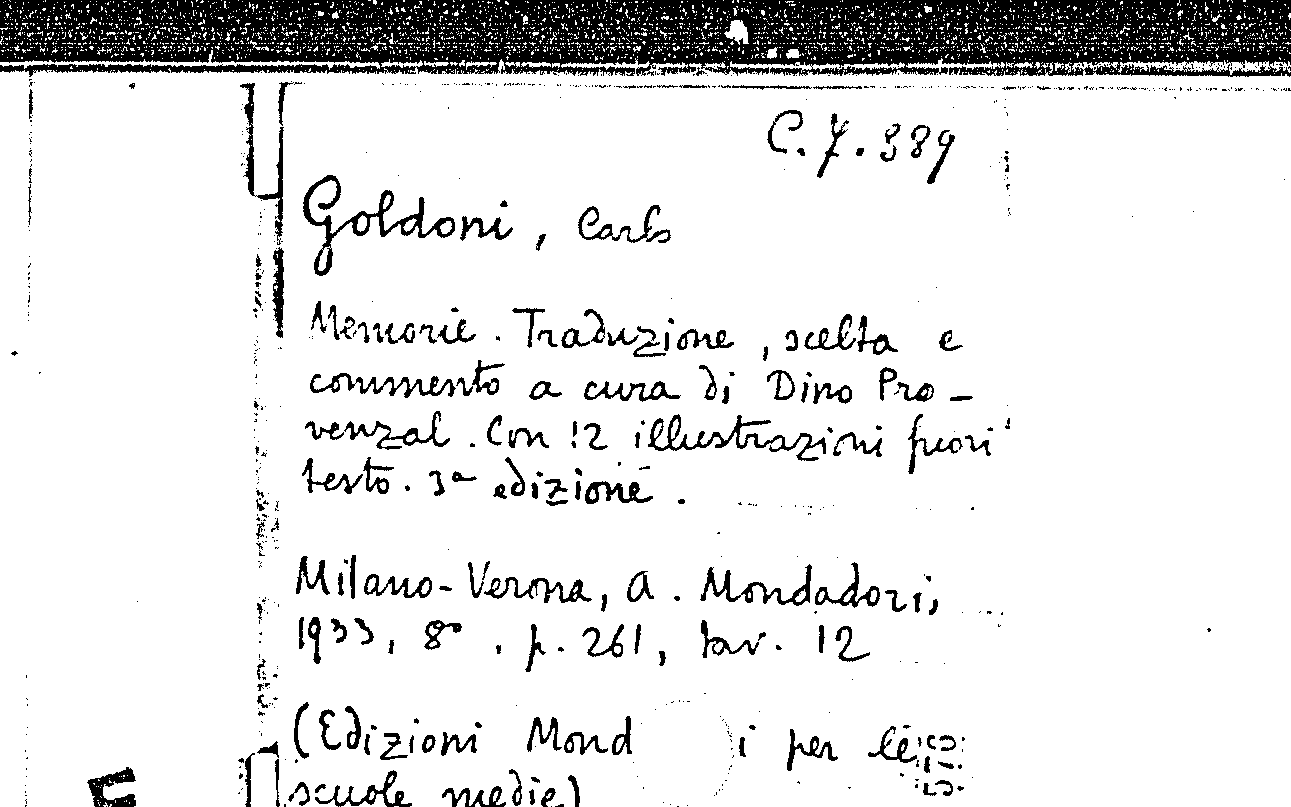 C.7.389
Goldoni, Carlo
Memorie. Traduzione, scelta e
commento a cura di Dino Pro-
venzal. Con 12 illustrazioni fuori
testo. 3ª edizione.
Milano-Verona, A. Mondadori,
1933, 8°. p. 261, tav. 12
(Edizioni Mond i per le
scuole medie)